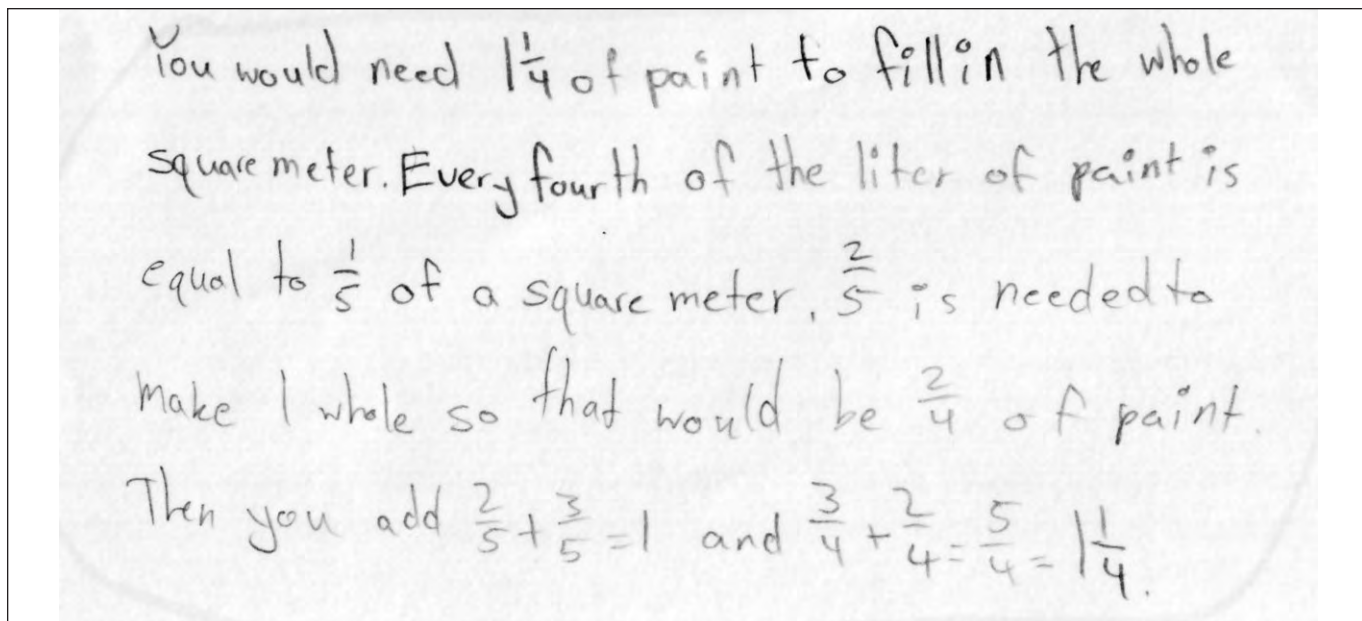 You would need 1 1/4 of paint to fill in the whole
square meter. Every fourth of the liter of paint is
equal to 1/5 of a square meter. 2/5 is needed to
make 1 whole so that would be 2/4 of paint.
Then you add 2/5 + 3/5 = 1 and 3/4 + 2/4 = 5/4 = 1 1/4.